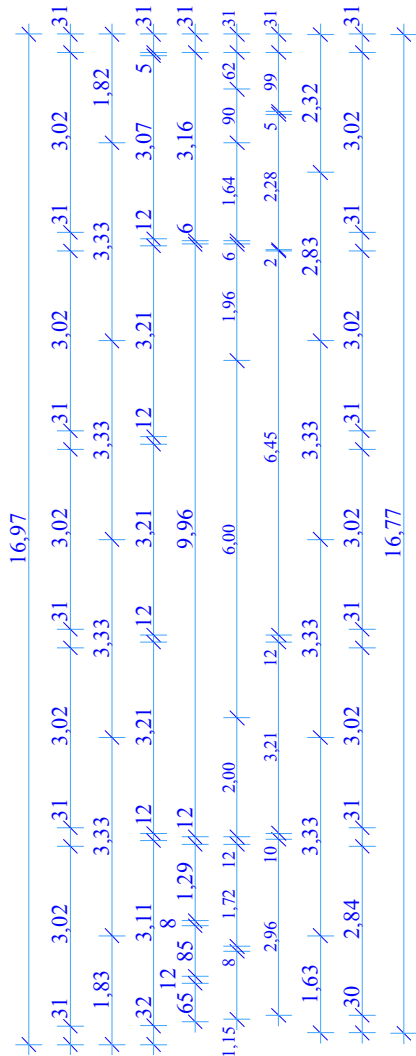 16,97
31 3,02 31 3,02 31 3,02 31 3,02 31 3,02 31
1,83 3,33 3,33 3,33 3,33 1,82
32 3,11 12 3,21 12 3,21 12 3,21 12 3,07 5 31
65 12 85 8 1,29 12 9,96 6 3,16 31
1,15 8 1,72 12 2,00 6,00 1,96 6 1,64 90 62 31
2,96 10 3,21 12 6,45 2 2,28 5 99 31
1,63 3,33 3,33 3,33 2,83 2,32
30 2,84 31 3,02 31 3,02 31 3,02 31 3,02 31
16,77